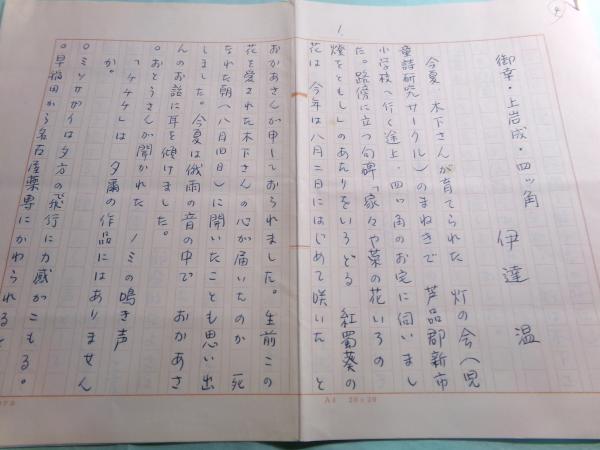 1.
御幸・上岩成・四ッ角
伊達 温
今夏 木下さんが育てられた 灯の会(児
童詩研究サークル)のまねきで 芦品郡新市
小学校へ行く途上・四ッ角のお宅に伺いまし
た。路傍に立つ句碑「家々や菜の花いろの
燈をともし」のあたりをいろどる 紅蜀葵の
花は 今年は八月二日にはじめて咲いた と
おかあさんが申しておられました。生前この
花を愛された木下さんの心が届いたのか 死
なれた朝(八月四日)に開いたことも思い出
しました。今夏は俄雨の音の中で おかあさ
んのお話に耳を傾けました。
○おとうさんが聞かれた ノミの鳴き声
「ケケケ」は 夕爾の作品にはありません
か。
○ミソサザイは夕方の飛行に力感がこもる。
○早稲田から名古屋薬専にかわられると
A4 20×20